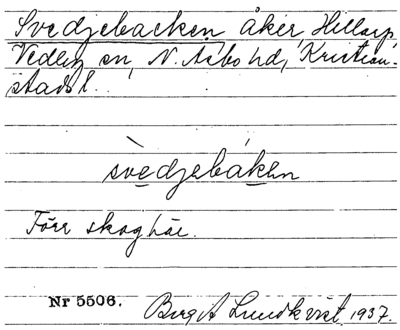 Svedjebacken, åker, Hillarp,
Vedby sn, N. Åsbo hd, Kristian-
stads l.
svedjebáken
Förr skog här.
Nr 5506. Birgit Lundkvist 1937.